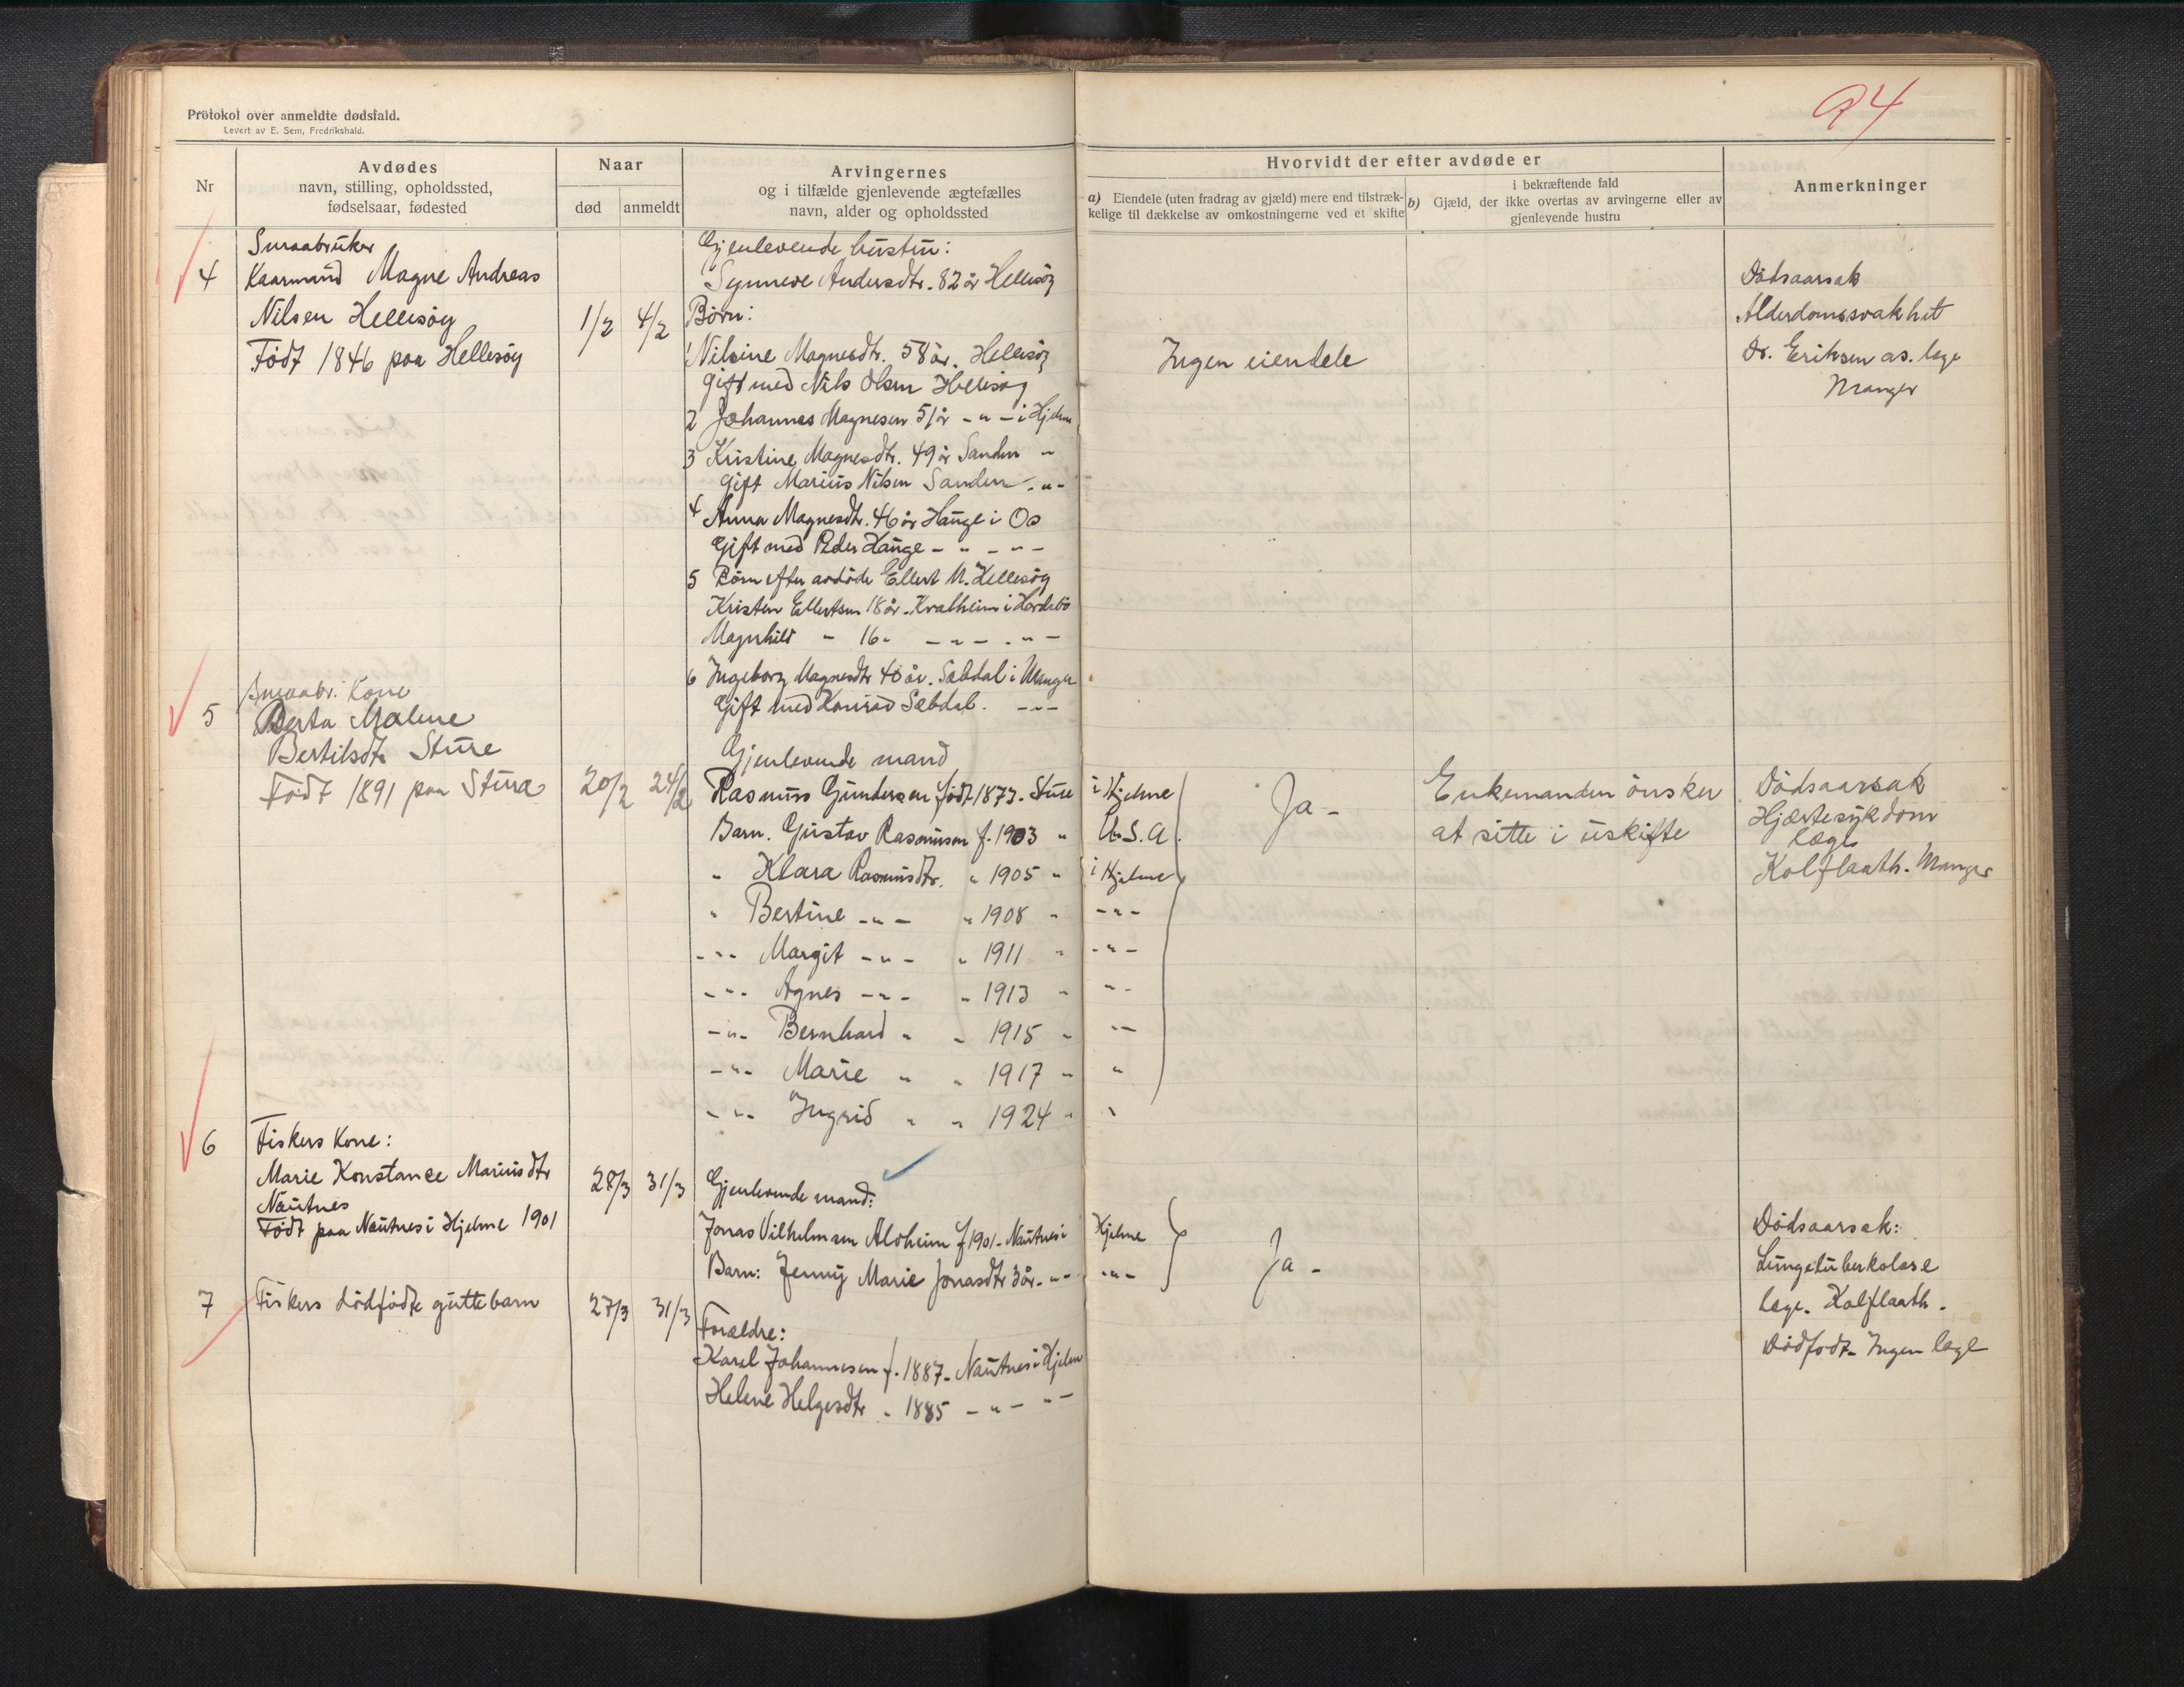 Protokol over anmeldte dødsfald.
Levert av E. Sem, Fredrikshald.
94
Nr
Avdødes
navn, stilling, opholdssted,
fødselsaar, fødested
Naar
død
anmeldt
Arvingernes
og i tilfælde gjenlevende ægtefælles
navn, alder og opholdssted
Hvorvidt der efter avdøde er
a) Eiendele (uten fradrag av gjæld) mere end tilstræk-
kelige til dækkelse av omkostningerne ved et skifte
i bekræftende fald
b) Gjæld, der ikke overtas av arvingerne eller av
gjenlevende hustru
Anmerkninger
4
Smaabruker
Kaarmand Magne Andreas
Nilsen Hellesøy
Født 1846 paa Hellesøy
1/2 4/2
Gjenlevende hustru:
Synneve Andersdtr. 82 år Hellesøy
Børn:
1 Nilsine Magnesdtr. 58 år. Hellesøy
Gift med Nils Olsen Hellesøy
2 Johannes Magnesen 51 år - " - i Hjelme
3 Kristine Magnesdtr. 49 år Sanden "
Gift Marius Nilsen Sanden - " -
4 Anna Magnesdtr. 46 år Hauge i Os
Gift med Peder Hauge - " - " -
5 Børn efter avdøde Ellert M. Hellesøy
Kristen Ellertsen 18 år - Kvalheim i Hordabø
Magnhild " 16 " - " - . - " -
6 Ingeborg Magnesdtr 40 år. Sæbdal i Manger
Gift med Konrad Sæbdal. - " -
Ingen eiendele
Dødsaarsak
Alderdomssvakhet
Dr. Eriksen as. læge
Manger
5
Smaabr. Kone
Berta Malene
Bertilsdtr Sture
Født 1891 paa Stura
20/2 24/2
Gjenlevende mand
Rasmus Gundersen født 1873 - Sture i Hjelme
Barn. Gustav Rasmussen f. 1903 " U.S.A.
" Klara Rasmusdtr. " 1905 " i Hjelme
" Bertine - " - " 1908 " - " -
- " - Margit - " - " 1911 " - " -
- " - Agnes - " - " 1913 " - " -
- " - Bernhard " " 1915 " - " -
- " - Marie " " 1917 " "
- " - Ingrid " " 1924 " "
Ja -
Enkemanden ønsker
at sitte i uskifte
Dødsaarsak
Hjærtesykdom
læge
Kolflaath. Manger
6
Fiskers Kone:
Marie Konstance Mariusdtr
Nautnes
Født paa Nautnes i Hjelme 1901
28/3 31/3
Gjenlevende mand:
Jonas Vilhelmsen Alvheim f 1901 - Nautnes i Hjelme
Barn: Jenny Marie Jonasdtr 3 år - " - - " -
Ja -
Dødsaarsak:
Lungetuberkolose
læge. Kolflaath.
7
Fiskers dødfødte guttebarn
27/3 31/3
Forældre:
Karl Johannesen f. 1887 - Nautnes i Hjelme
Helene Helgesdtr " 1885 - " - " -
Dødfødt - Ingen læge